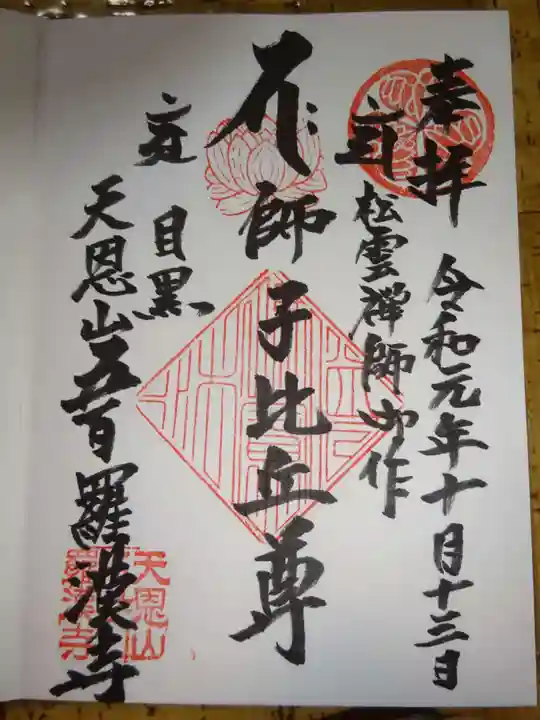 奉拝
令和元年十月十三日
松雲禅師作
師子比丘尊
目黒
天恩山五百羅漢寺
天恩山
羅漢寺